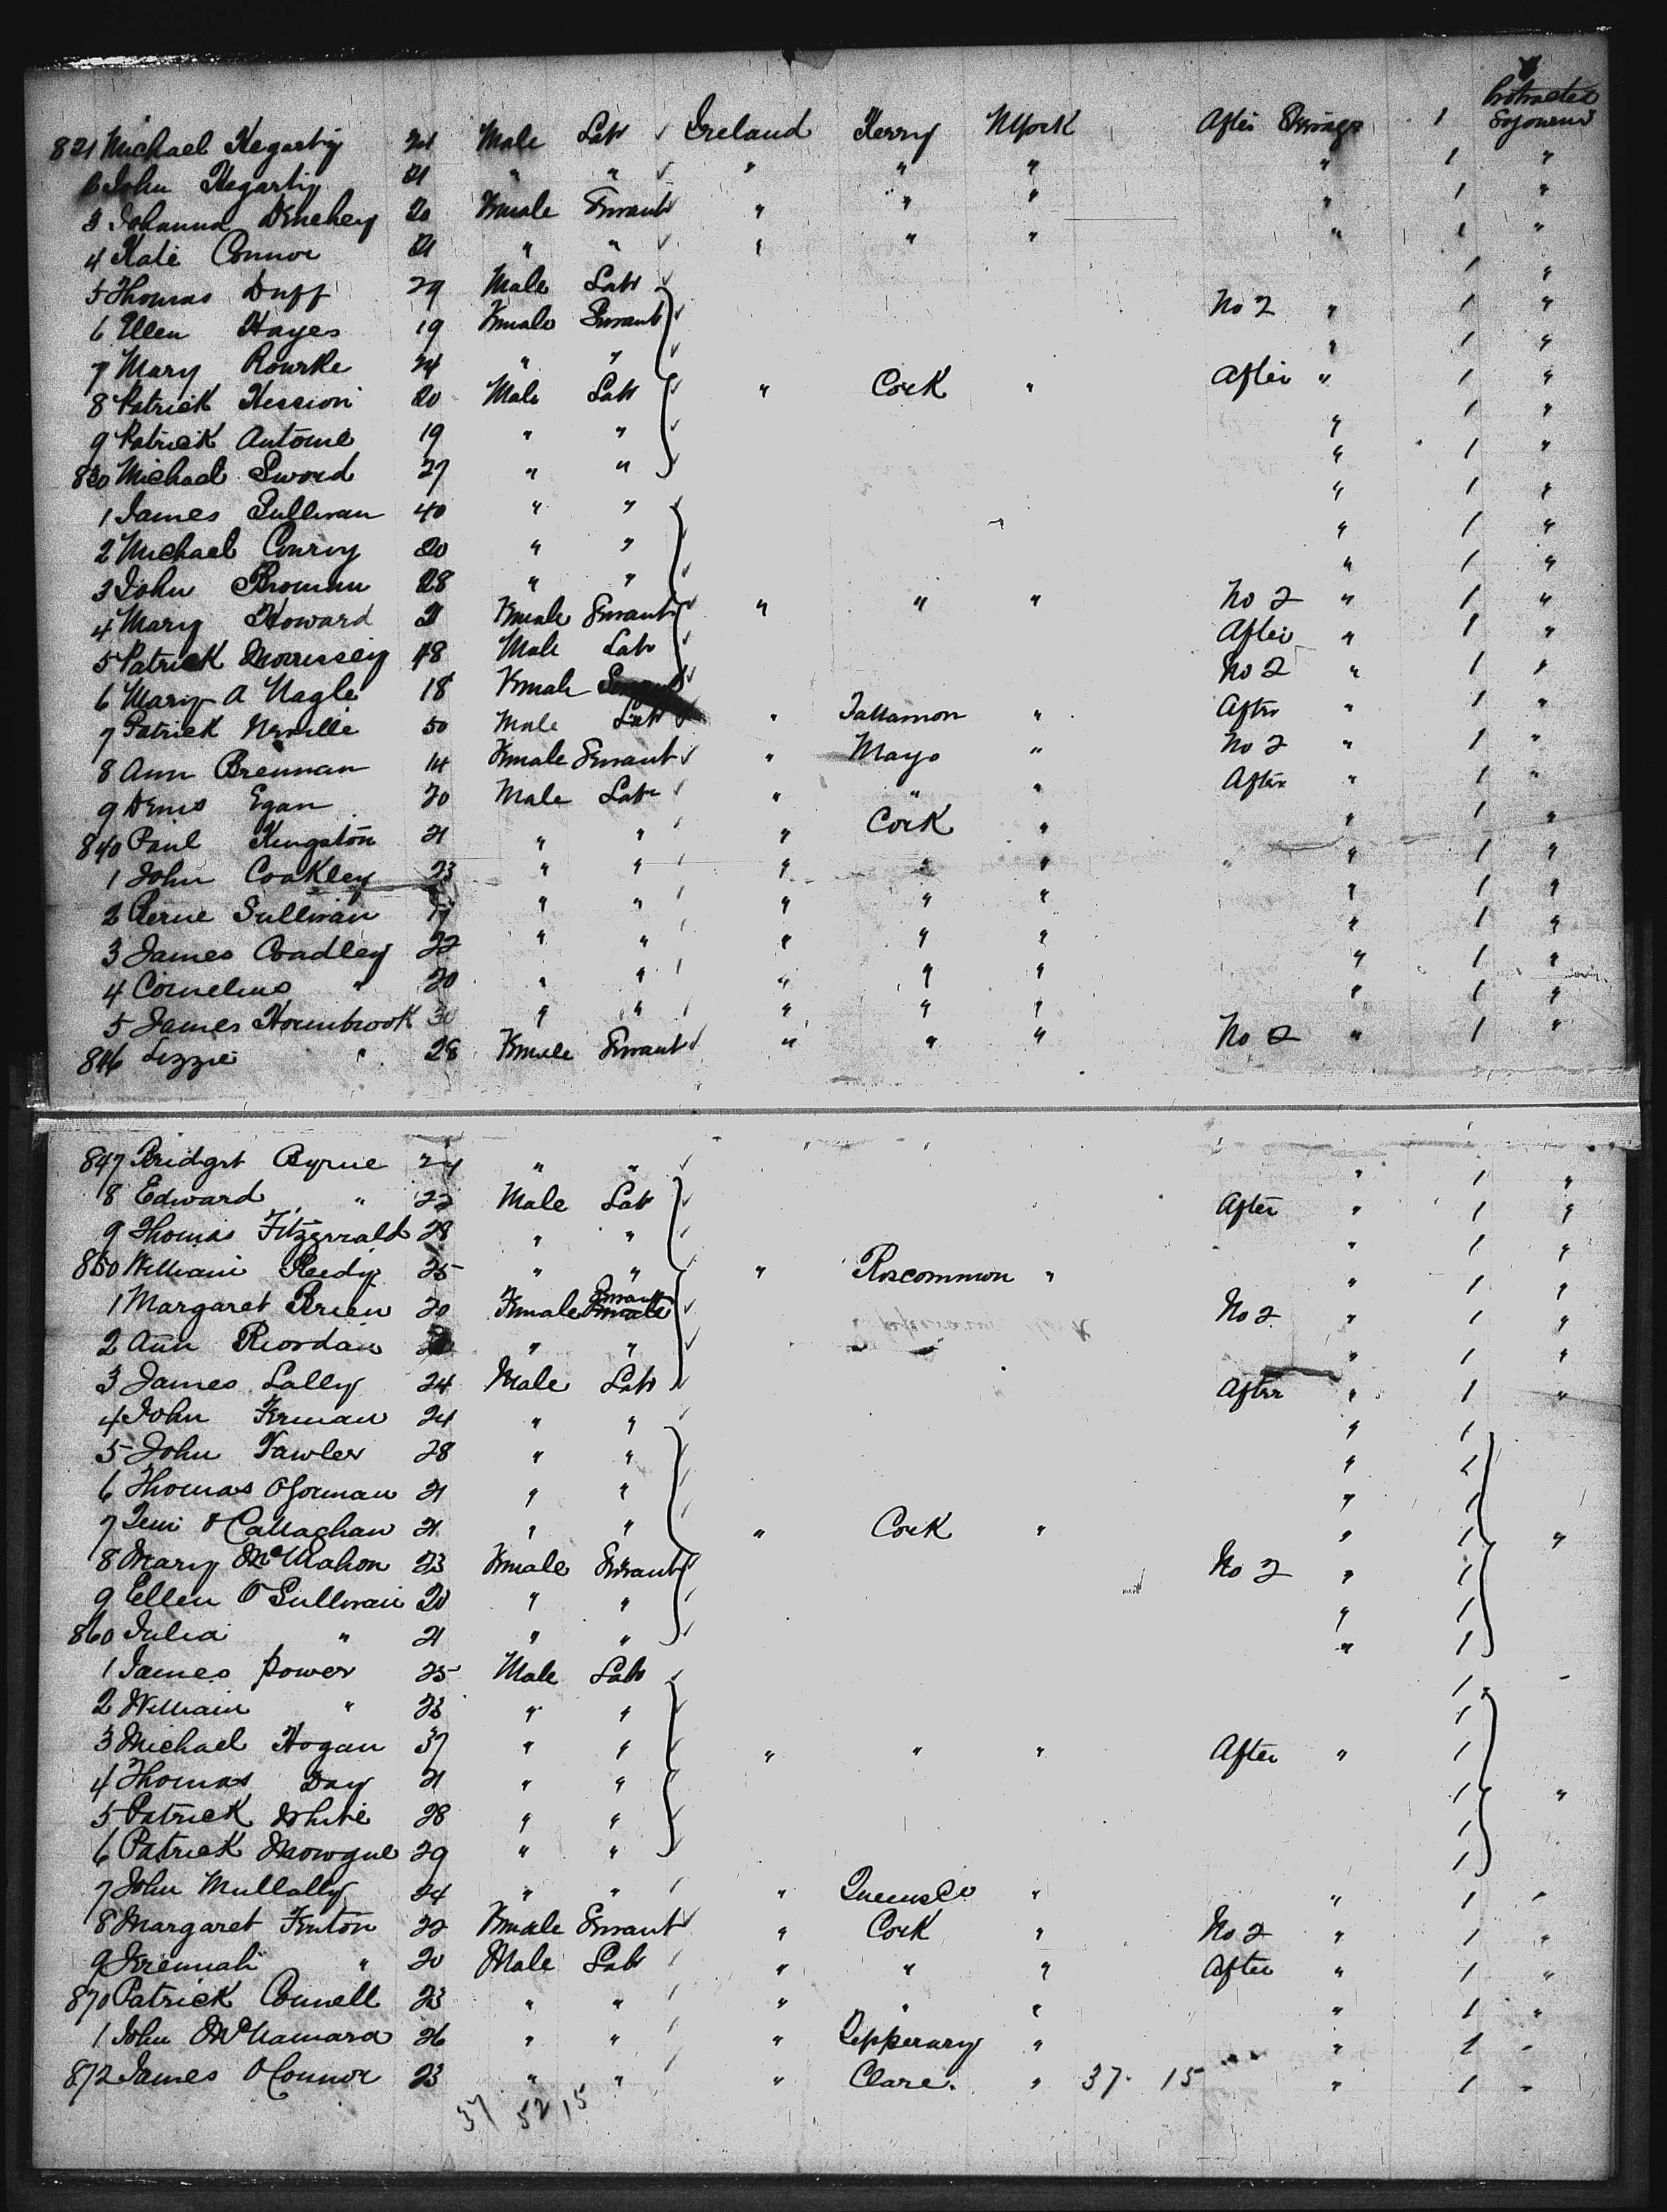 Protracted
821 Michael Hegarty 24 Male Labr Ireland Kerry NYork After Steerage 1 Sojourn
2 John Hegarty 21 " " " " " " 1 "
3 Johanna Denehey 20 Female Servant " " " " 1 "
4 Kate Connor 21 " " " " " " 1 "
5 Thomas Duff 29 Male Labr 1 "
6 Ellen Hayes 19 Female Servant No 2 " 1 "
7 Mary Rourke 24 " " " 1 "
8 Patrick Hession 20 Male Labr " Cork " After " 1 "
9 Patrick Antome 19 " " " 1 "
830 Michael Sword 27 " " " 1 "
1 James Sullivan 40 " " " 1 "
2 Michael Conroy 20 " " " 1 "
3 John Brosnan 28 " " " 1 "
4 Mary Howard 21 Female Servant " " " No 2 " 1 "
5 Patrick Morrissey 48 Male Labr After " 1 "
6 Mary A Nagle 18 Female No 2 " 1 "
7 Patrick Neville 50 Male Labr " " After " 1 "
8 Ann Brennan 14 Female Servant " Mayo " No 2 " 1 "
9 Denis Egan 20 Male Labr " " " After " 1 "
840 Paul Kingston 21 " " " Cork " " 1 "
1 John Coakley 23 " " " " " " 1 "
2 Pierce Sullivan " " " " " " 1 "
3 James Coadley 22 " " " " " " 1 "
4 Cornelius " 20 " " " " " " 1 "
5 James Hornibrook 30 " " " " " " 1 "
846 Lizzie " 28 Female Servant " " " No 2 " 1 "
847 Bridget Byrne 24 " " " 1 "
8 Edward " 22 Male Labr After " 1 "
9 Thomas Fitzgerald 28 " " " 1 "
850 William Reidy 25 " " " Roscommon " " 1 "
1 Margaret Brien 20 Female Servant No 2 " 1 "
2 Ann Riordan " " " 1 "
3 James Lally 24 Male Labr After " 1 "
4 John Kernan 24 " " " 1
5 John Fawler 28 " " " 1
6 Thomas OGorman 21 " " " 1
7 O'Callaghan 21 " " " Cork " " 1 "
8 Mary McMahon 23 Female Servant No 2 " 1
9 Ellen O'Sullivan 20 " " " 1
860 Julia " 21 " " " 1
1 James Power 25 Male Labr 1 "
2 William " 23 " " 1
3 Michael Hogan 37 " " " " " After " 1
4 Thomas Day 21 " " 1 "
5 Patrick White 28 " " 1
6 Patrick 29 " " 1
7 John Mullally 24 " " " Queens Co " " 1 "
8 Margaret Fenton 22 Female Servant " Cork " No 2 " 1 "
9 Jeremiah " 20 Male Labr " " " After " 1 "
870 Patrick Connell 23 " " " " " " 1 "
1 John McNamara 26 " " " Tipperary " " 1 "
872 James O'Connor 23 " " " Clare. " 37. 15 " 1 "
37 52 15